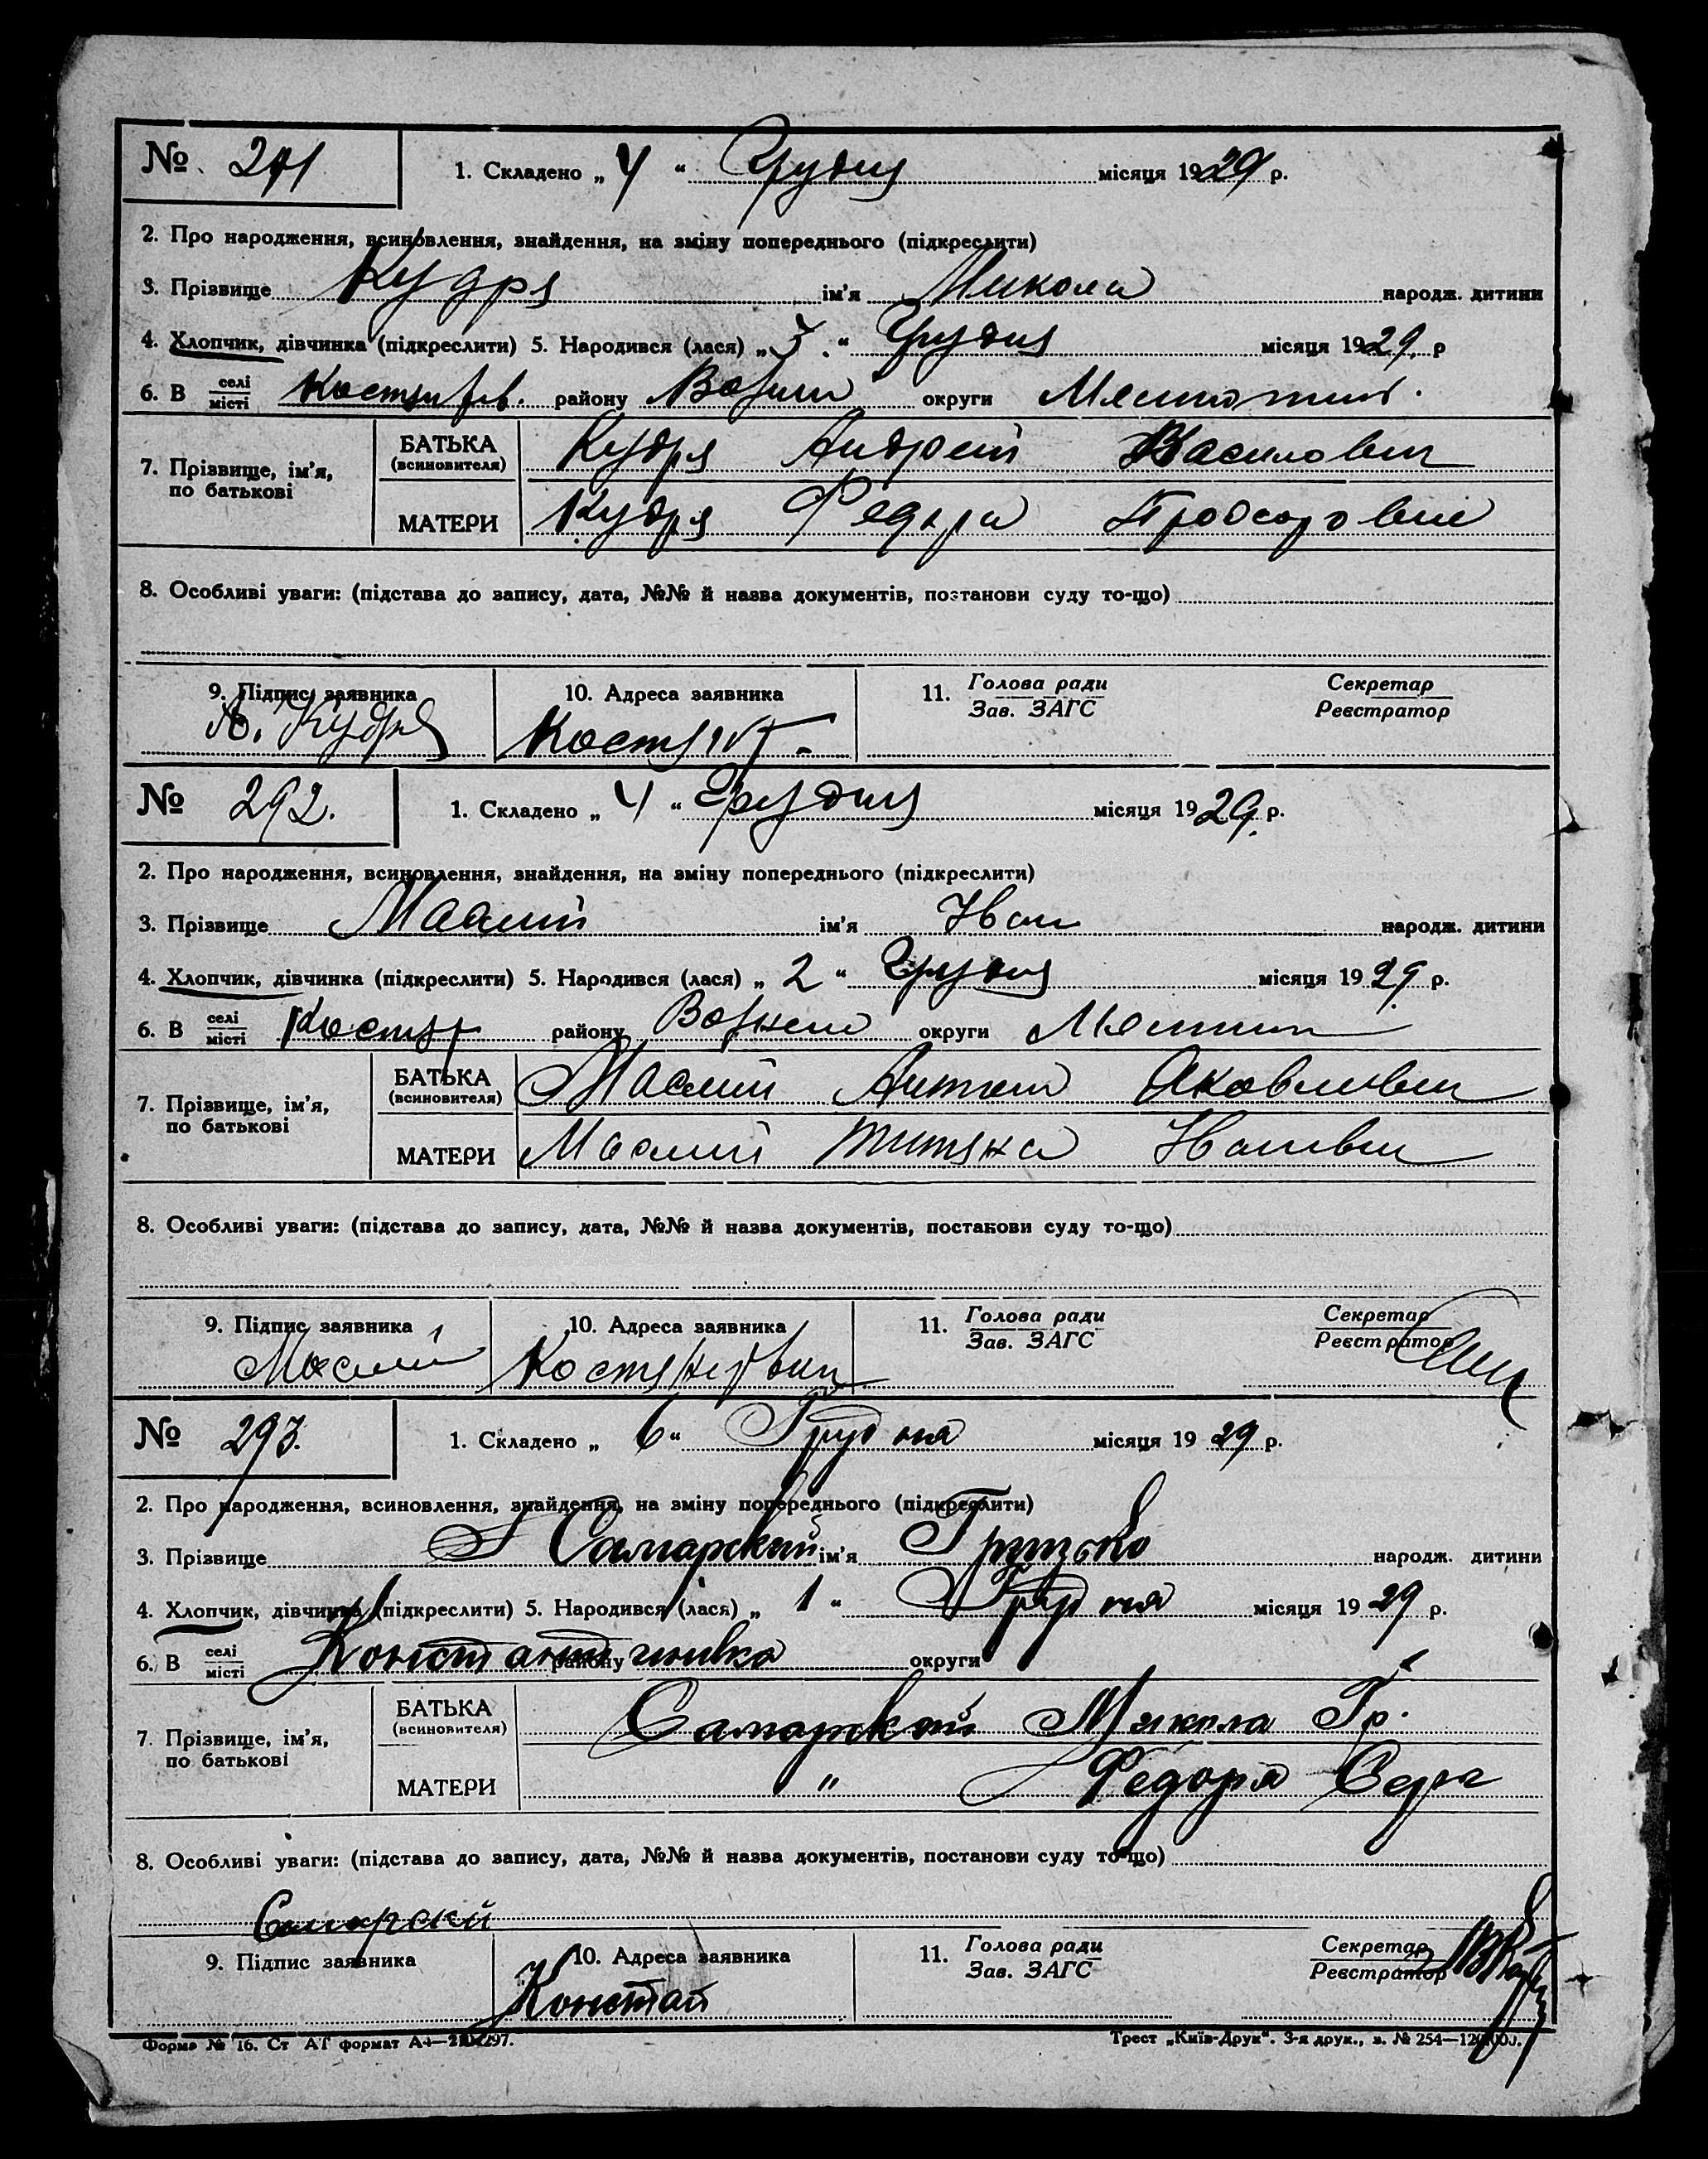 № 291 1. Складено „ 4 “ Грудня місяця 1929 р.
2. Про народження, всиновлення, знайдення, на зміну попереднього (підкреслити)
3. Прізвище Кудря ім'я Микола народж. дитини
4. Хлопчик, дівчинка (підкреслити) 5. Народився (лася) „ 3 “ Грудня місяця 1929 р
6. В селі місті району округи
7. Прізвище, ім'я, по батькові
БАТЬКА (всиновителя) Кудря Андрей Василович
МАТЕРИ Кудря
8. Особливі уваги: (підстава до запису, дата, №№ й назва документів, постанови суду то-що)
9. Підпис заявника 10. Адреса заявника 11. Голова ради Секретар
Зав. ЗАГС Реєстратор
А. Кудря
№ 292. 1. Складено „ 4 “ Грудня місяця 1929. р.
2. Про народження, всиновлення, знайдення, на зміну попереднього (підкреслити)
3. Прізвище Маслий ім'я Иван народж. дитини
4. Хлопчик, дівчинка (підкреслити) 5. Народився (лася) „ 2 “ Грудня місяця 1929 р.
6. В селі місті району округи
7. Прізвище, ім'я, по батькові
БАТЬКА (всиновителя) Маслий Антон Яковлевич
МАТЕРИ Маслий
8. Особливі уваги: (підстава до запису, дата, №№ й назва документів, постанови суду то-що)
9. Підпис заявника 10. Адреса заявника 11. Голова ради Секретар
Зав. ЗАГС Реєстратор
Маслий
№ 293. 1. Складено „ 6 “ Грудня місяця 1929 р.
2. Про народження, всиновлення, знайдення, на зміну попереднього (підкреслити)
3. Прізвище Самарський ім'я Грицько народж. дитини
4. Хлопчик, дівчинка (підкреслити) 5. Народився (лася) „ 1 “ Грудня місяця 1929 р.
6. В селі місті району округи
7. Прізвище, ім'я, по батькові
БАТЬКА (всиновителя) Самарский Микола Гр.
МАТЕРИ " Федора Серг
8. Особливі уваги: (підстава до запису, дата, №№ й назва документів, постанови суду то-що)
Самарский
9. Підпис заявника 10. Адреса заявника 11. Голова ради Секретар
Зав. ЗАГС Реєстратор
Констан
Форма № 16. Ст АГ формат А4— Трест „Київ-Друк“. 3-я друк., з. № 254—